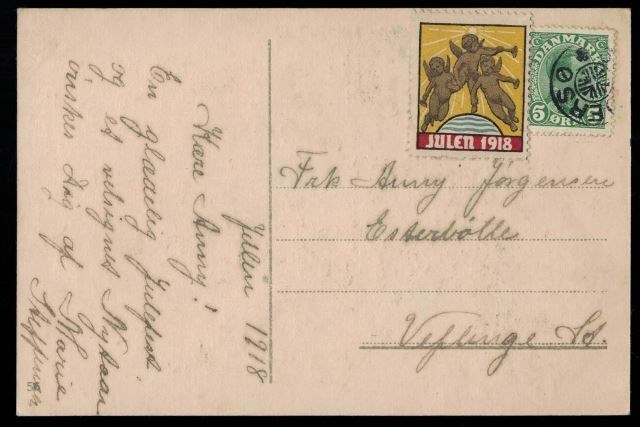 Julen 1918
Kære Anny!
En glædelig Julefest
og et velsignet Nytaar
ønskes dig af Marie
JULEN 1918
DANMARK
5 ØRE
Frk Anny Jørgensen
Esterbølle
Veflinge St.